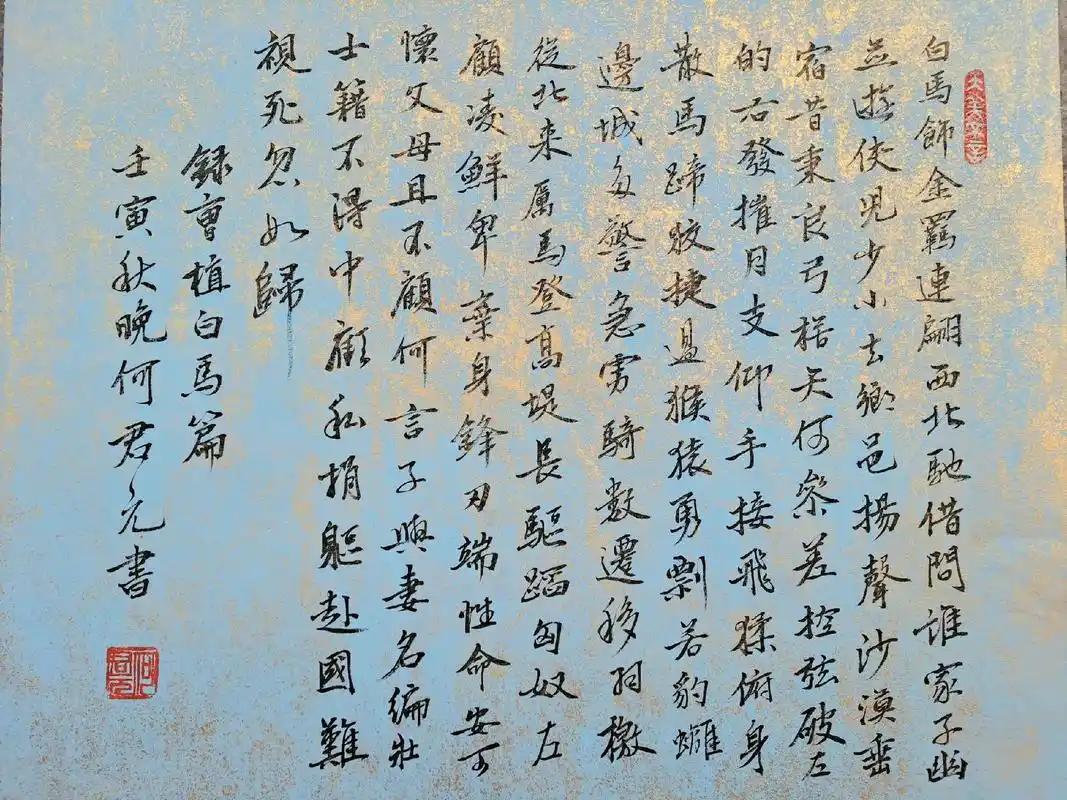 白馬飾金羈連翩西北馳借問誰家子幽
並遊俠兒少小去鄉邑揚聲沙漠垂
宿昔秉良弓楛矢何參差控弦破左
的右發摧月支仰手接飛猱俯身
散馬蹄狡捷過猴猿勇剽若豹螭
邊城多警急虜騎數遷移羽檄
從北来厲馬登高堤長驅蹈匈奴左
顧凌鮮卑棄身鋒刃端性命安可
懷父母且不顧何言子與妻名編壯
士籍不得中顧私捐軀赴國難
視死忽如歸
録曹植白馬篇
壬寅秋晚何君元書